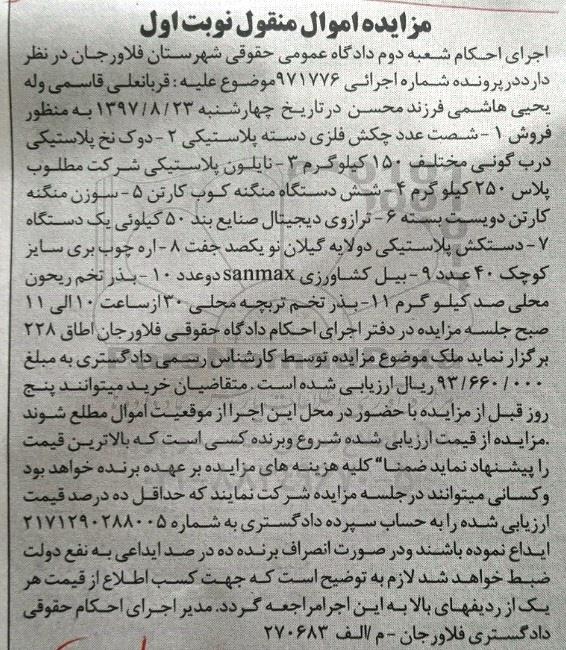 مزایده اموال منقول نوبت اول
اجرای احکام شعبه دوم دادگاه عمومی حقوقی شهرستان فلاورجان در نظر
دارد در پرونده شماره اجرائی ۹۷۱۷۷۶ موضوع علیه : قربانعلی قاسمی وله
یحیی هاشمی فرزند محسن در تاریخ چهارشنبه ۱۳۹۷/۸/۲۳ به منظور
فروش ۱ - شصت عدد چکش فلزی دسته پلاستیکی ۲ - دوک نخ پلاستیکی
درب گونی مختلف ۱۵۰ کیلوگرم ۳ - نایلون پلاستیکی شرکت مطلوب
پلاس ۲۵۰ کیلو گرم ۴ - شش دستگاه منگنه کوب کارتن ۵ - سوزن منگنه
کارتن دویست بسته ۶ - ترازوی دیجیتال صنایع بند ۵۰ کیلوئی یک دستگاه
۷ - دستکش پلاستیکی دولایه گیلان نو یکصد جفت ۸ - اره چوب بری سایز
کوچک ۴۰ عدد ۹ - بیل کشاورزی sanmax دو عدد ۱۰ - بذر تخم ریحون
محلی صد کیلو گرم ۱۱ - بذر تخم تربچه محلی ۳۰ از ساعت ۱۰ الی ۱۱
صبح جلسه مزایده در دفتر اجرای احکام دادگاه حقوقی فلاورجان اطاق ۲۲۸
برگزار نماید ملک موضوع مزایده توسط کارشناس رسمی دادگستری به مبلغ
۹۳/۶۶۰/۰۰۰ ریال ارزیابی شده است . متقاضیان خرید میتوانند پنج
روز قبل از مزایده با حضور در محل این اجرا از موقعیت اموال مطلع شوند
.مزایده از قیمت ارزیابی شده شروع وبرنده کسی است که بالاترین قیمت
را پیشنهاد نماید ضمنا" کلیه هزینه های مزایده بر عهده برنده خواهد بود
وکسانی میتوانند در جلسه مزایده شرکت نمایند که حداقل ده درصد قیمت
ارزیابی شده را به حساب سپرده دادگستری به شماره ۲۱۷۱۲۹۰۲۸۸۰۰۵
ایداع نموده باشند ودر صورت انصراف برنده ده در صد ایداعی به نفع دولت
ضبط خواهد شد لازم به توضیح است که جهت کسب اطلاع از قیمت هر
یک از ردیفهای بالا به این اجرا مراجعه گردد. مدیر اجرای احکام حقوقی
دادگستری فلاورجان - م /الف ۲۷۰۶۸۳